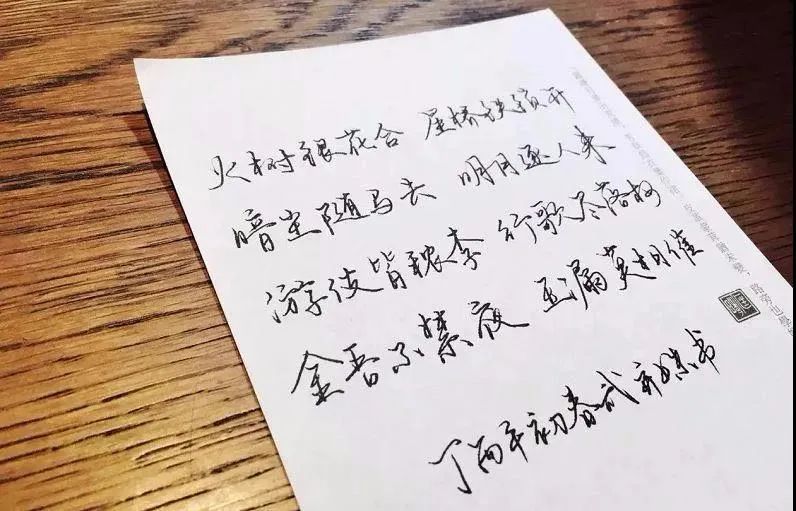 火树银花合 星桥铁锁开
暗尘随马去 明月逐人来
游伎皆秾李 行歌尽落梅
金吾不禁夜 玉漏莫相催
丁酉年初春武书